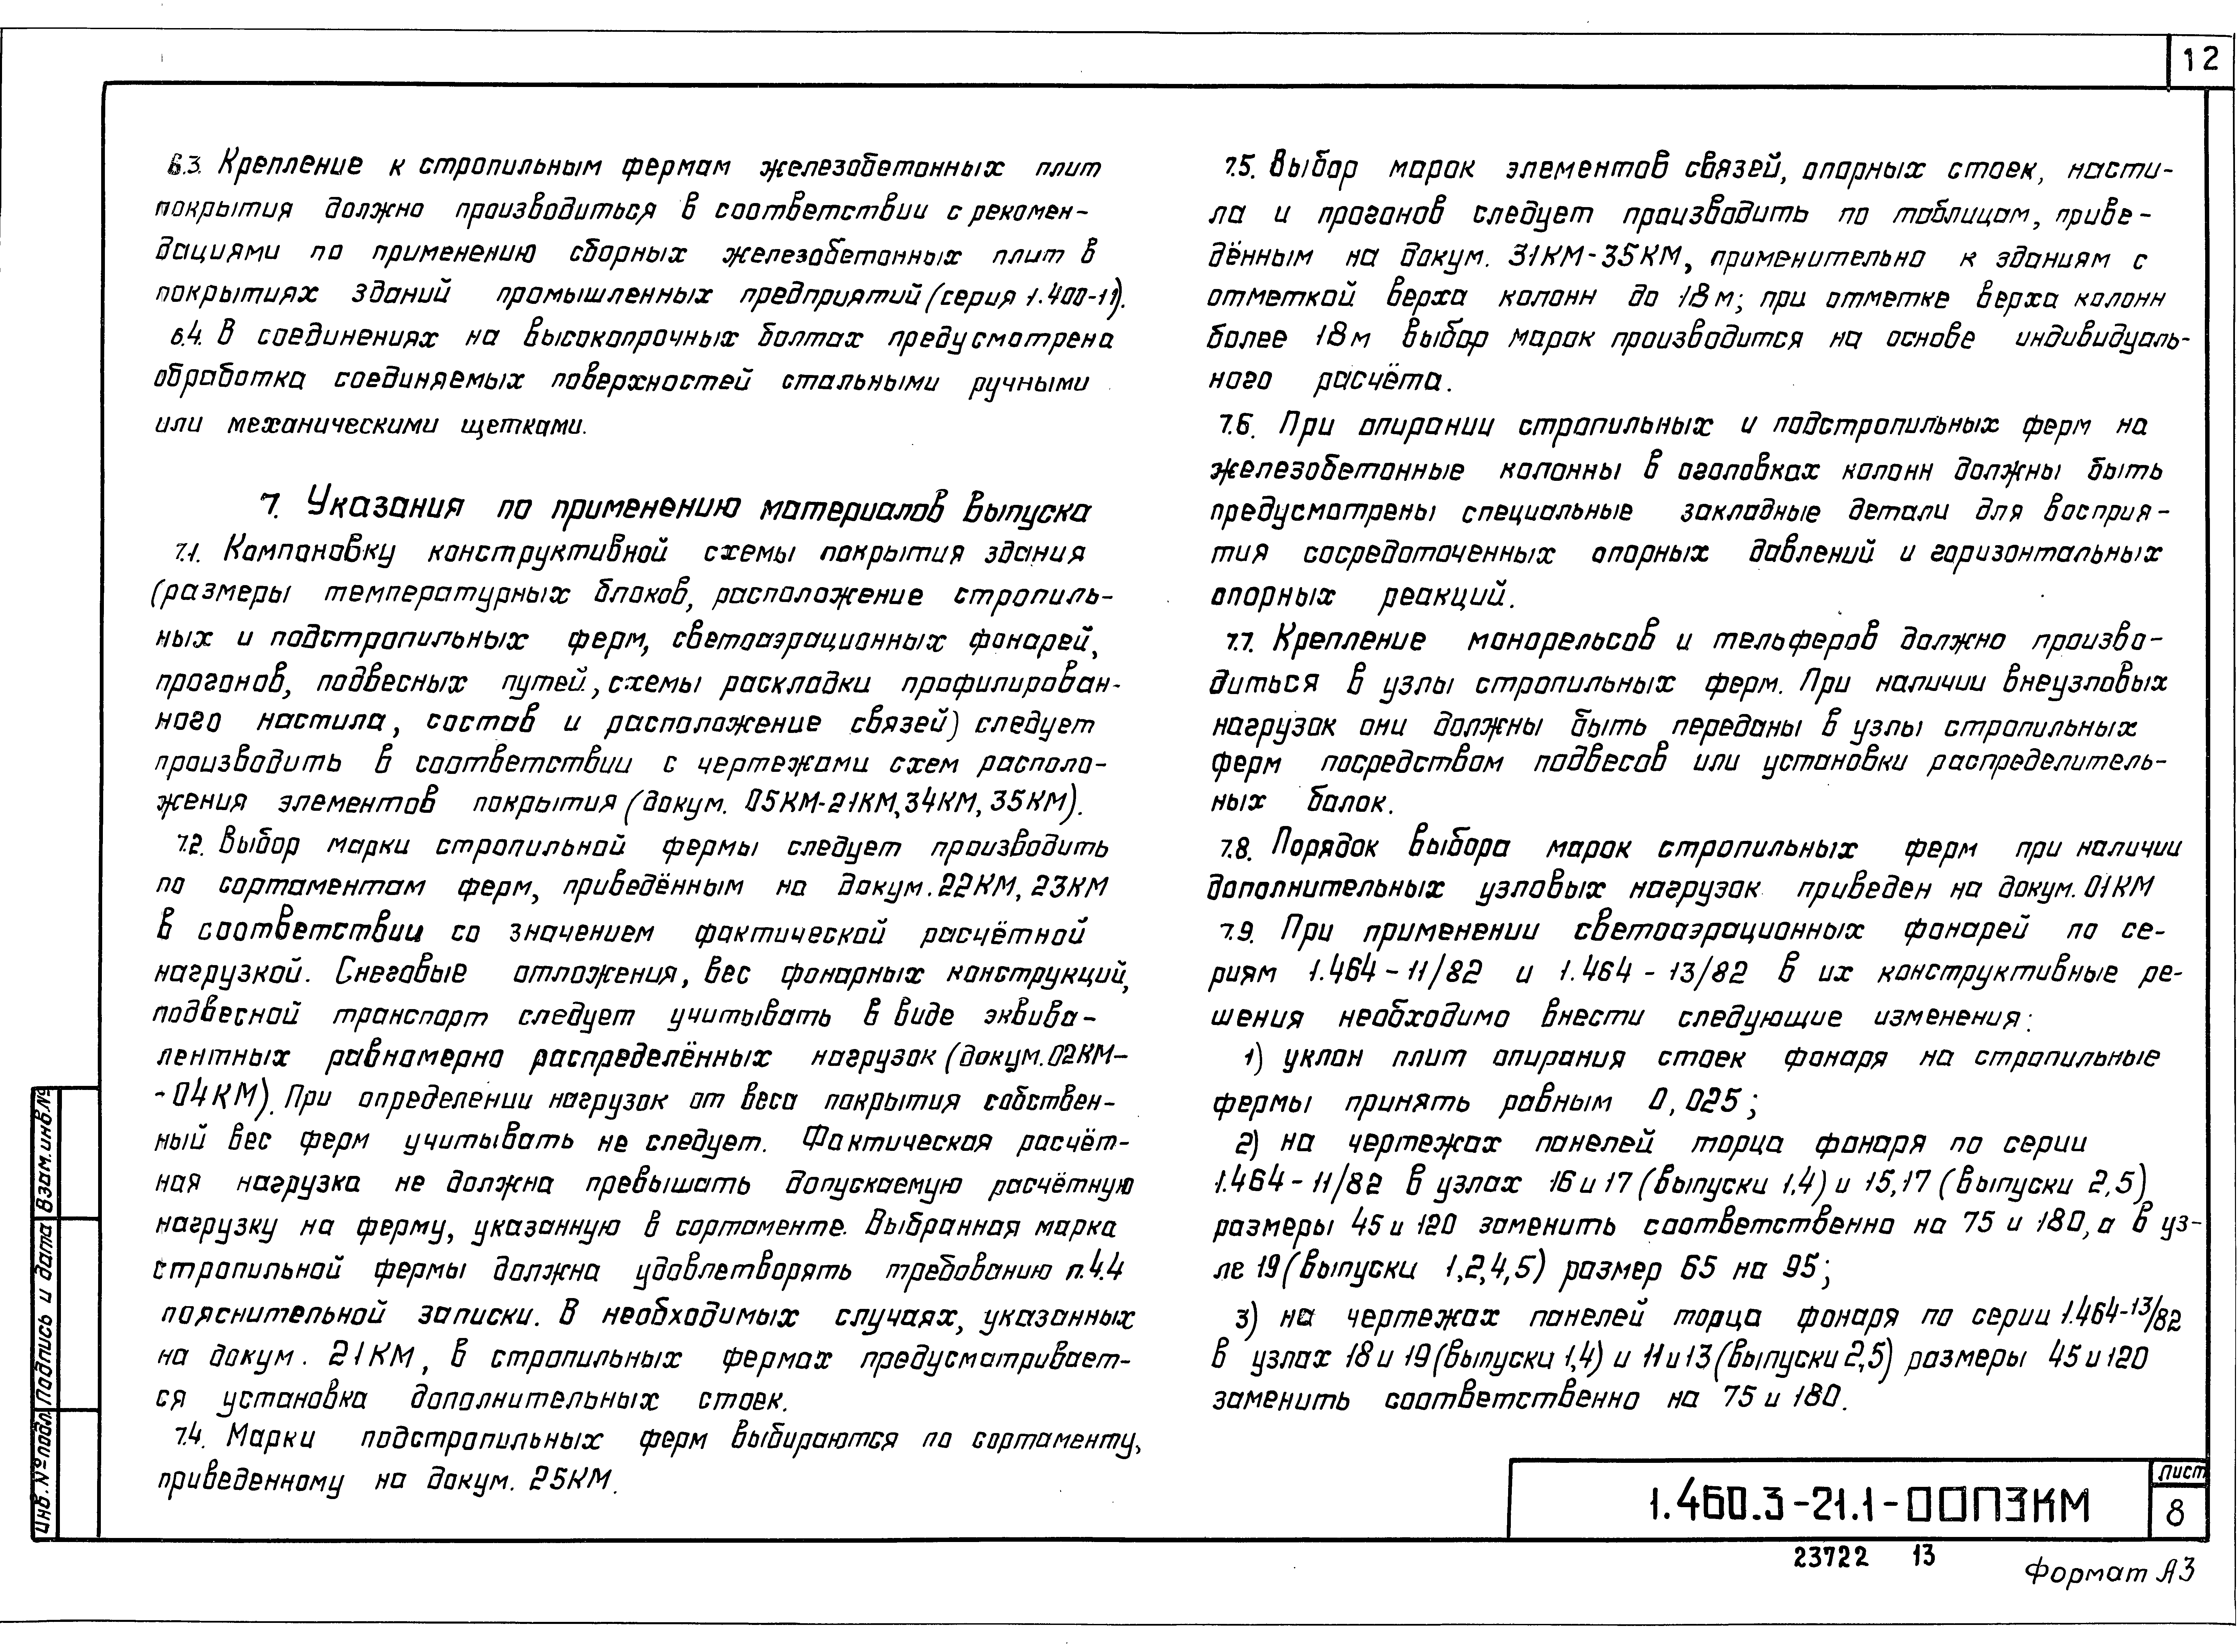 12
6.3. Крепление к стропильным фермам железобетонных плит
покрытия должно производиться в соответствии с рекомен-
дациями по применению сборных железобетонных плит в
покрытиях зданий промышленных предприятий (серия 1.400-11).
6.4. В соединениях на высокопрочных болтах предусмотрена
обработка соединяемых поверхностей стальными ручными
или механическими щетками.
7. Указания по применению материалов выпуска
7.1. Компановку конструктивной схемы покрытия здания
(размеры температурных блоков, расположение стропиль-
ных и подстропильных ферм, светоаэрационных фонарей,
прогонов, подвесных путей, схемы раскладки профилирован-
ного настила, состав и расположение связей) следует
производить в соответствии с чертежами схем располо-
жения элементов покрытия (докум. 05КМ-21КМ, 34КМ, 35КМ).
7.2. Выбор марки стропильной фермы следует производить
по сортаментам ферм, приведённым на докум. 22КМ, 23КМ
в соответствии со значением фактической расчётной
нагрузкой. Снеговые отложения, вес фонарных конструкций,
подвесной транспорт следует учитывать в виде эквива-
лентных равномерно распределённых нагрузок (докум. 02КМ-
-04КМ). При определении нагрузок от веса покрытия собствен-
ный вес ферм учитывать не следует. Фактическая расчёт-
ная нагрузка не должна превышать допускаемую расчётную
нагрузку на ферму, указанную в сортаменте. Выбранная марка
стропильной фермы должна удовлетворять требованию п.4.4
пояснительной записки. В необходимых случаях, указанных
на докум. 21КМ, в стропильных фермах предусматривает-
ся установка дополнительных стоек.
7.4. Марки подстропильных ферм выбираются по сортаменту,
приведенному на докум. 25КМ.
7.5. Выбор марок элементов связей, опорных стоек, насти-
ла и прогонов следует производить по таблицам, приве-
дённым на докум. 31КМ-35КМ, применительно к зданиям с
отметкой верха колонн до 18м; при отметке верха колонн
более 18м выбор марок производится на основе индивидуаль-
ного расчёта.
7.6. При опирании стропильных и подстропильных ферм на
железобетонные колонны в оголовках колонн должны быть
предусмотрены специальные закладные детали для восприя-
тия сосредоточенных опорных давлений и горизонтальных
опорных реакций.
7.7. Крепление монорельсов и тельферов должно произво-
диться в узлы стропильных ферм. При наличии внеузловых
нагрузок они должны быть переданы в узлы стропильных
ферм посредством подвесов или установки распределитель-
ных балок.
7.8. Порядок выбора марок стропильных ферм при наличии
дополнительных узловых нагрузок приведен на докум. 01КМ
7.9. При применении светоаэрационных фонарей по се-
риям 1.464-11/82 и 1.464-13/82 в их конструктивные ре-
шения необходимо внести следующие изменения:
1) уклон плит опирания стоек фонаря на стропильные
фермы принять равным 0,025;
2) на чертежах панелей торца фонаря по серии
1.464-11/82 в узлах 16 и 17 (выпуски 1,4) и 15,17 (выпуски 2,5)
размеры 45 и 120 заменить соответственно на 75 и 180, а в уз-
ле 19 (выпуски 1,2,4,5) размер 65 на 95;
3) на чертежах панелей торца фонаря по серии 1.464-13/82
в узлах 18 и 19 (выпуски 1,4) и 11 и 13 (выпуски 2,5) размеры 45 и 120
заменить соответственно на 75 и 180.
Инв. № подл. Подпись и дата Взам. инв. №
1.460.3-21.1-00ПЗКМ
Лист
8
23722 13
Формат А3